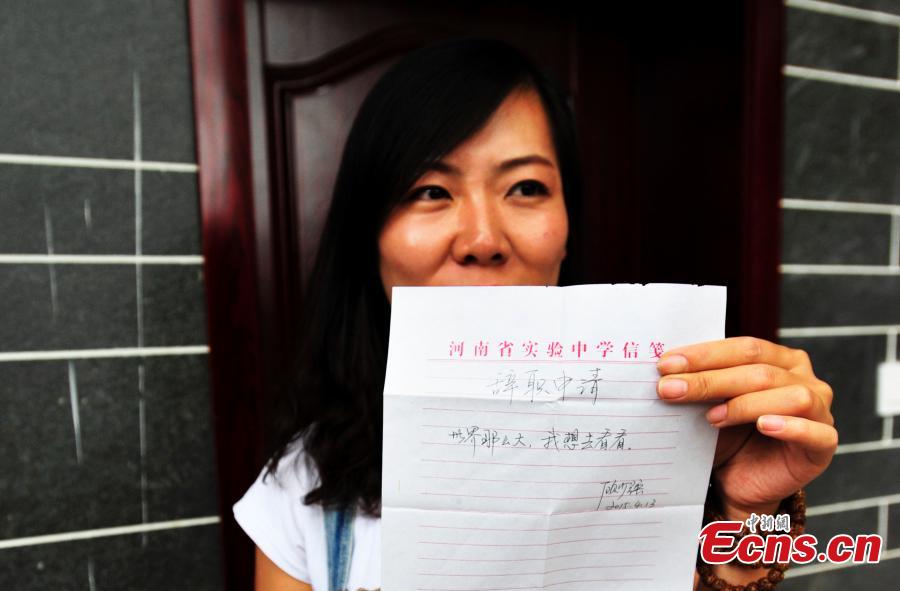 河南省实验中学信笺
辞职申请
世界那么大，我想去看看。
顾少强
2015.4.13
中新網
Ecns.cn